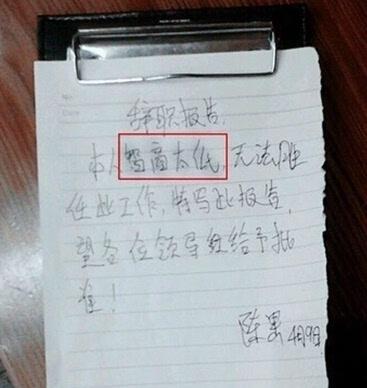 No.
Date
辞职报告
本人智商太低,无法胜
任此工作,特写此报告,
望各位领导给予批
准!
陈墨 4月9日